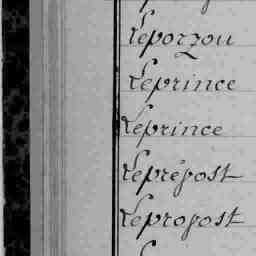 Leporzou
Leprince
Leprince
Leprévost
Leprovost